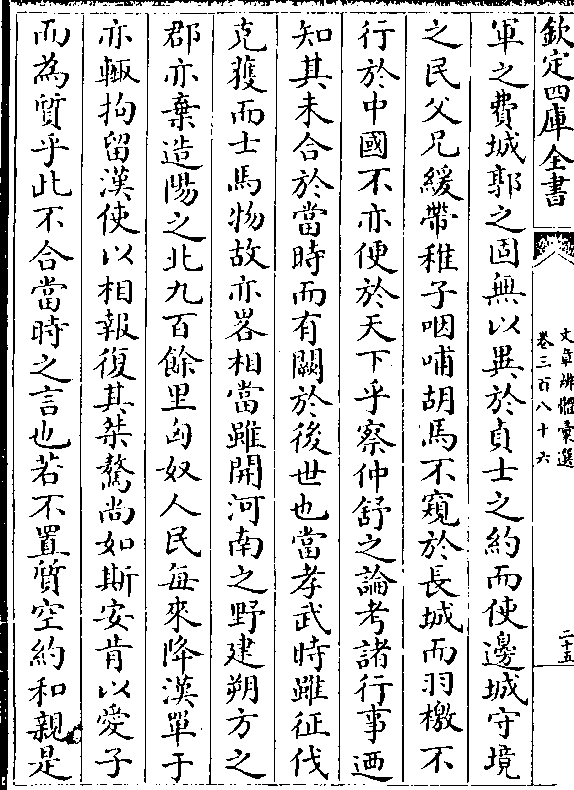 欽定四庫全書
文章辨體彙選
卷三百八十六
二十五
軍之費城郭之固無以異於貞士之約而使邊城守境
之民父兄緩帶稚子咽哺胡馬不窺於長城而羽檄不
行於中國不亦便於天下乎察仲舒之論考諸行事迺
知其未合於當時而有闕於後世也當孝武時雖征伐
克獲而士馬物故亦畧相當雖開河南之野建朔方之
郡亦棄造陽之北九百餘里匈奴人民每來降漢單于
亦輒拘留漢使以相報復其桀驁尚如斯安肯以愛子
而為質乎此不合當時之言也若不置質空約和親是